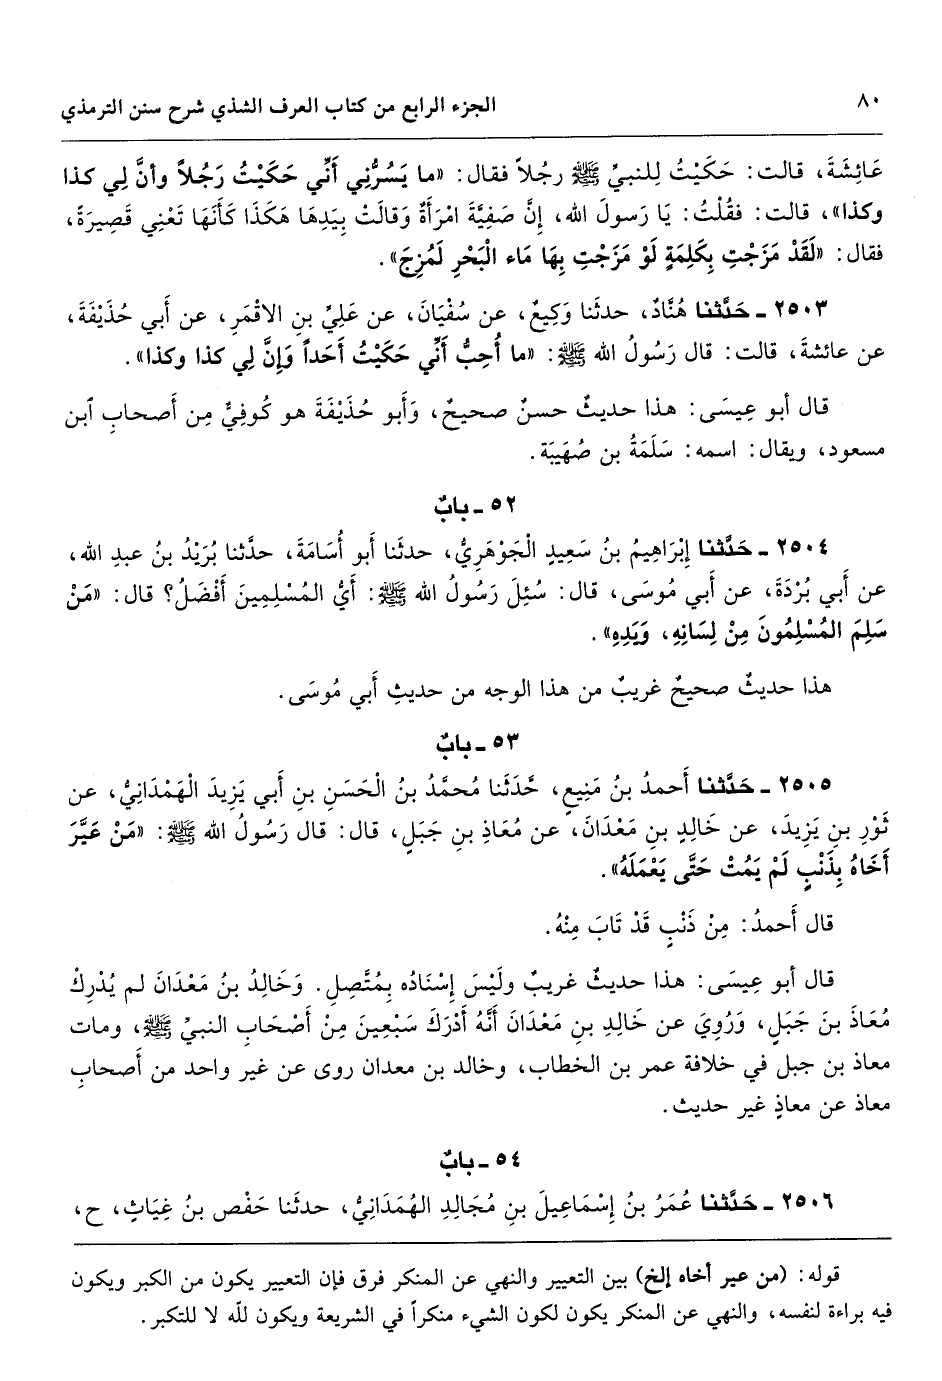 ٨٠
الجزء الرابع من كتاب العرف الشذي شرح سنن الترمذي
عَائِشَةَ، قالت: حَكَيْتُ لِلنبيِّ ﷺ رجُلاً فقال: «ما يَسُرُّنِي أَنِّي حَكَيْتُ رَجُلاً وأنَّ لِي كذا
وكذا»، قالت: فقُلْتُ: يَا رَسولَ الله، إنَّ صَفِيَّةَ امْرَأَةٌ وَقالَتْ بِيَدِهَا هَكَذَا كَأَنَهَا تَعْنِي قَصِيرَةً،
فقال: «لَقَدْ مَزَجْتِ بِكَلِمَةٍ لَوْ مَزَجْتِ بِهَا مَاء الْبَحْرِ لَمُزِجَ».
٢٥٠٣ ـ حَدَّثنا هُنَّادٌ، حدثَنا وَكِيعٌ، عن سُفْيَانَ، عن عَلِيِّ بنِ الاقْمَرِ، عن أبي حُذَيْفَةَ،
عن عائشةَ، قالت: قال رَسُولُ الله ﷺ: «ما أُحِبُّ أَنِّي حَكَيْتُ أَحَداً وَإنَّ لِي كذا وكذا».
قال أبو عِيسَى: هذا حديثٌ حسنٌ صحيحٌ، وَأبو حُذَيْفَةَ هو كُوفِيٌّ مِن أَصحابِ ٱبن
مسعود، ويقال: اسمه: سَلَمَةُ بن صُهَيْبَة.
٥٢ ـ بابٌ
٢٥٠٤ ـ حَدَّثنا إبْرَاهِيمُ بنُ سَعِيدٍ الْجَوْهَرِيُّ، حدثَنا أبو أُسَامَةَ، حدَّثنا بُرَيْدُ بنُ عبدِ الله،
عن أَبي بُرْدَةَ، عن أَبي مُوسَى، قال: سُئِلَ رَسُولُ الله ﷺ: أيُّ المُسْلِمِينَ أَفْضَلُ؟ قال: «مَنْ
سَلِمَ المُسْلِمُونَ مِنْ لِسَانِهِ، وَيَدِهِ».
هذا حديثٌ صحيحٌ غريبٌ من هذا الوجه من حديثِ أَبي مُوسَى.
٥٣ ـ بابٌ
٢٥٠٥ ـ حَدَّثنا أَحمدُ بنُ مَنِيعٍ، حَّدَثَنا مُحمَّدُ بنُ الْحَسَنِ بنِ أَبي يَزِيدَ الْهَمْدَانِيُّ، عن
ثَوْرِ بنِ يَزِيدَ، عن خَالِدِ بنِ مَعْدَانَ، عن مُعَاذِ بنِ جَبَلٍ، قال: قال رَسُولُ الله ﷺ: «مَنْ عَيَّرَ
أَخَاهُ بِذَنْبٍ لَمْ يَمُتْ حَتَّى يَعْمَلَهُ».
قال أَحمدُ: مِنْ ذَنْبٍ قَدْ تَابَ مِنْهُ.
قال أبو عِيسَى: هذا حديثٌ غريبٌ ولَيْسَ إسْنَادُه بِمُتَّصِلٍ. وَخَالِدُ بنُ مَعْدَانَ لم يُدْرِكْ
مُعَاذَ بنَ جَبَلٍ، وَرُوِيَ عن خَالِدِ بنِ مَعْدَانَ أَنَّهُ أَدْرَكَ سَبْعِينَ مِنْ أَصْحَابِ النبيِّ ﷺ، ومات
معاذ بن جبل في خلافة عمر بن الخطاب، وخالد بن معدان روى عن غير واحد من أَصحابِ
معاذ عن معاذٍ غير حديث.
٥٤ ـ بابٌ
٢٥٠٦ ـ حَدَّثنا عُمَرُ بنُ إسْمَاعِيلَ بنِ مُجَالِدِ الهُمَدَانِيُّ، حدثَنا حَفْص بنُ غِيَاثٍ، ح،
قوله: (من عير أخاه إلخ) بين التعيير والنهي عن المنكر فرق فإن التعيير يكون من الكبر ويكون
فيه براءة لنفسه، والنهي عن المنكر يكون لكون الشيء منكراً في الشريعة ويكون لله لا للتكبر.